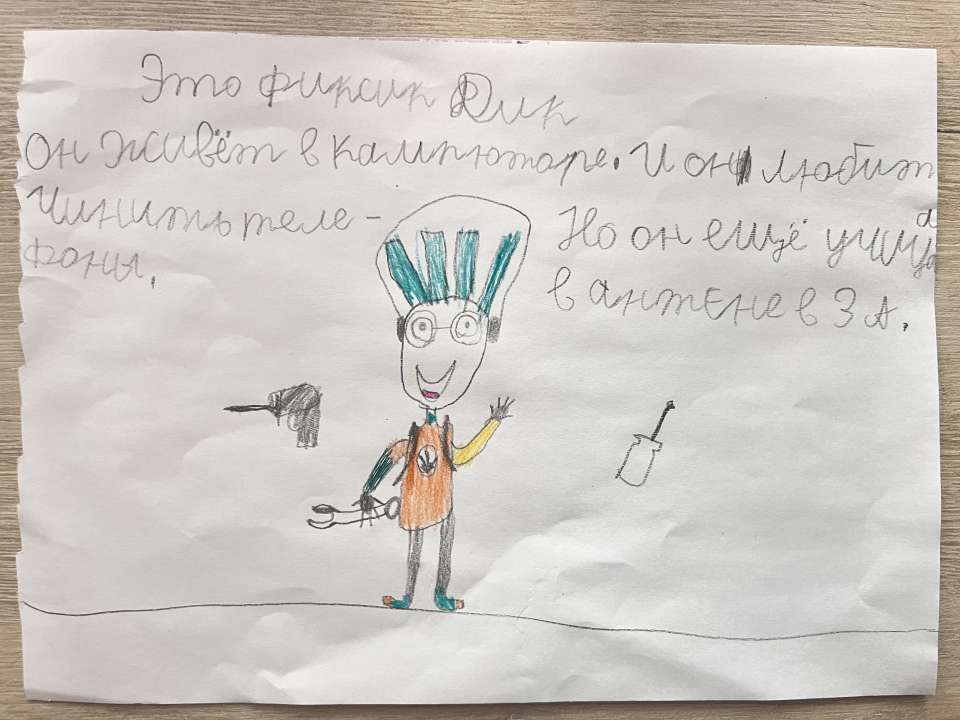 Это фиксик Дик
он живёт в кампютаре. И он любит
Чинить теле-
фоны.
Но он ещё учица
в антене в 3 А.